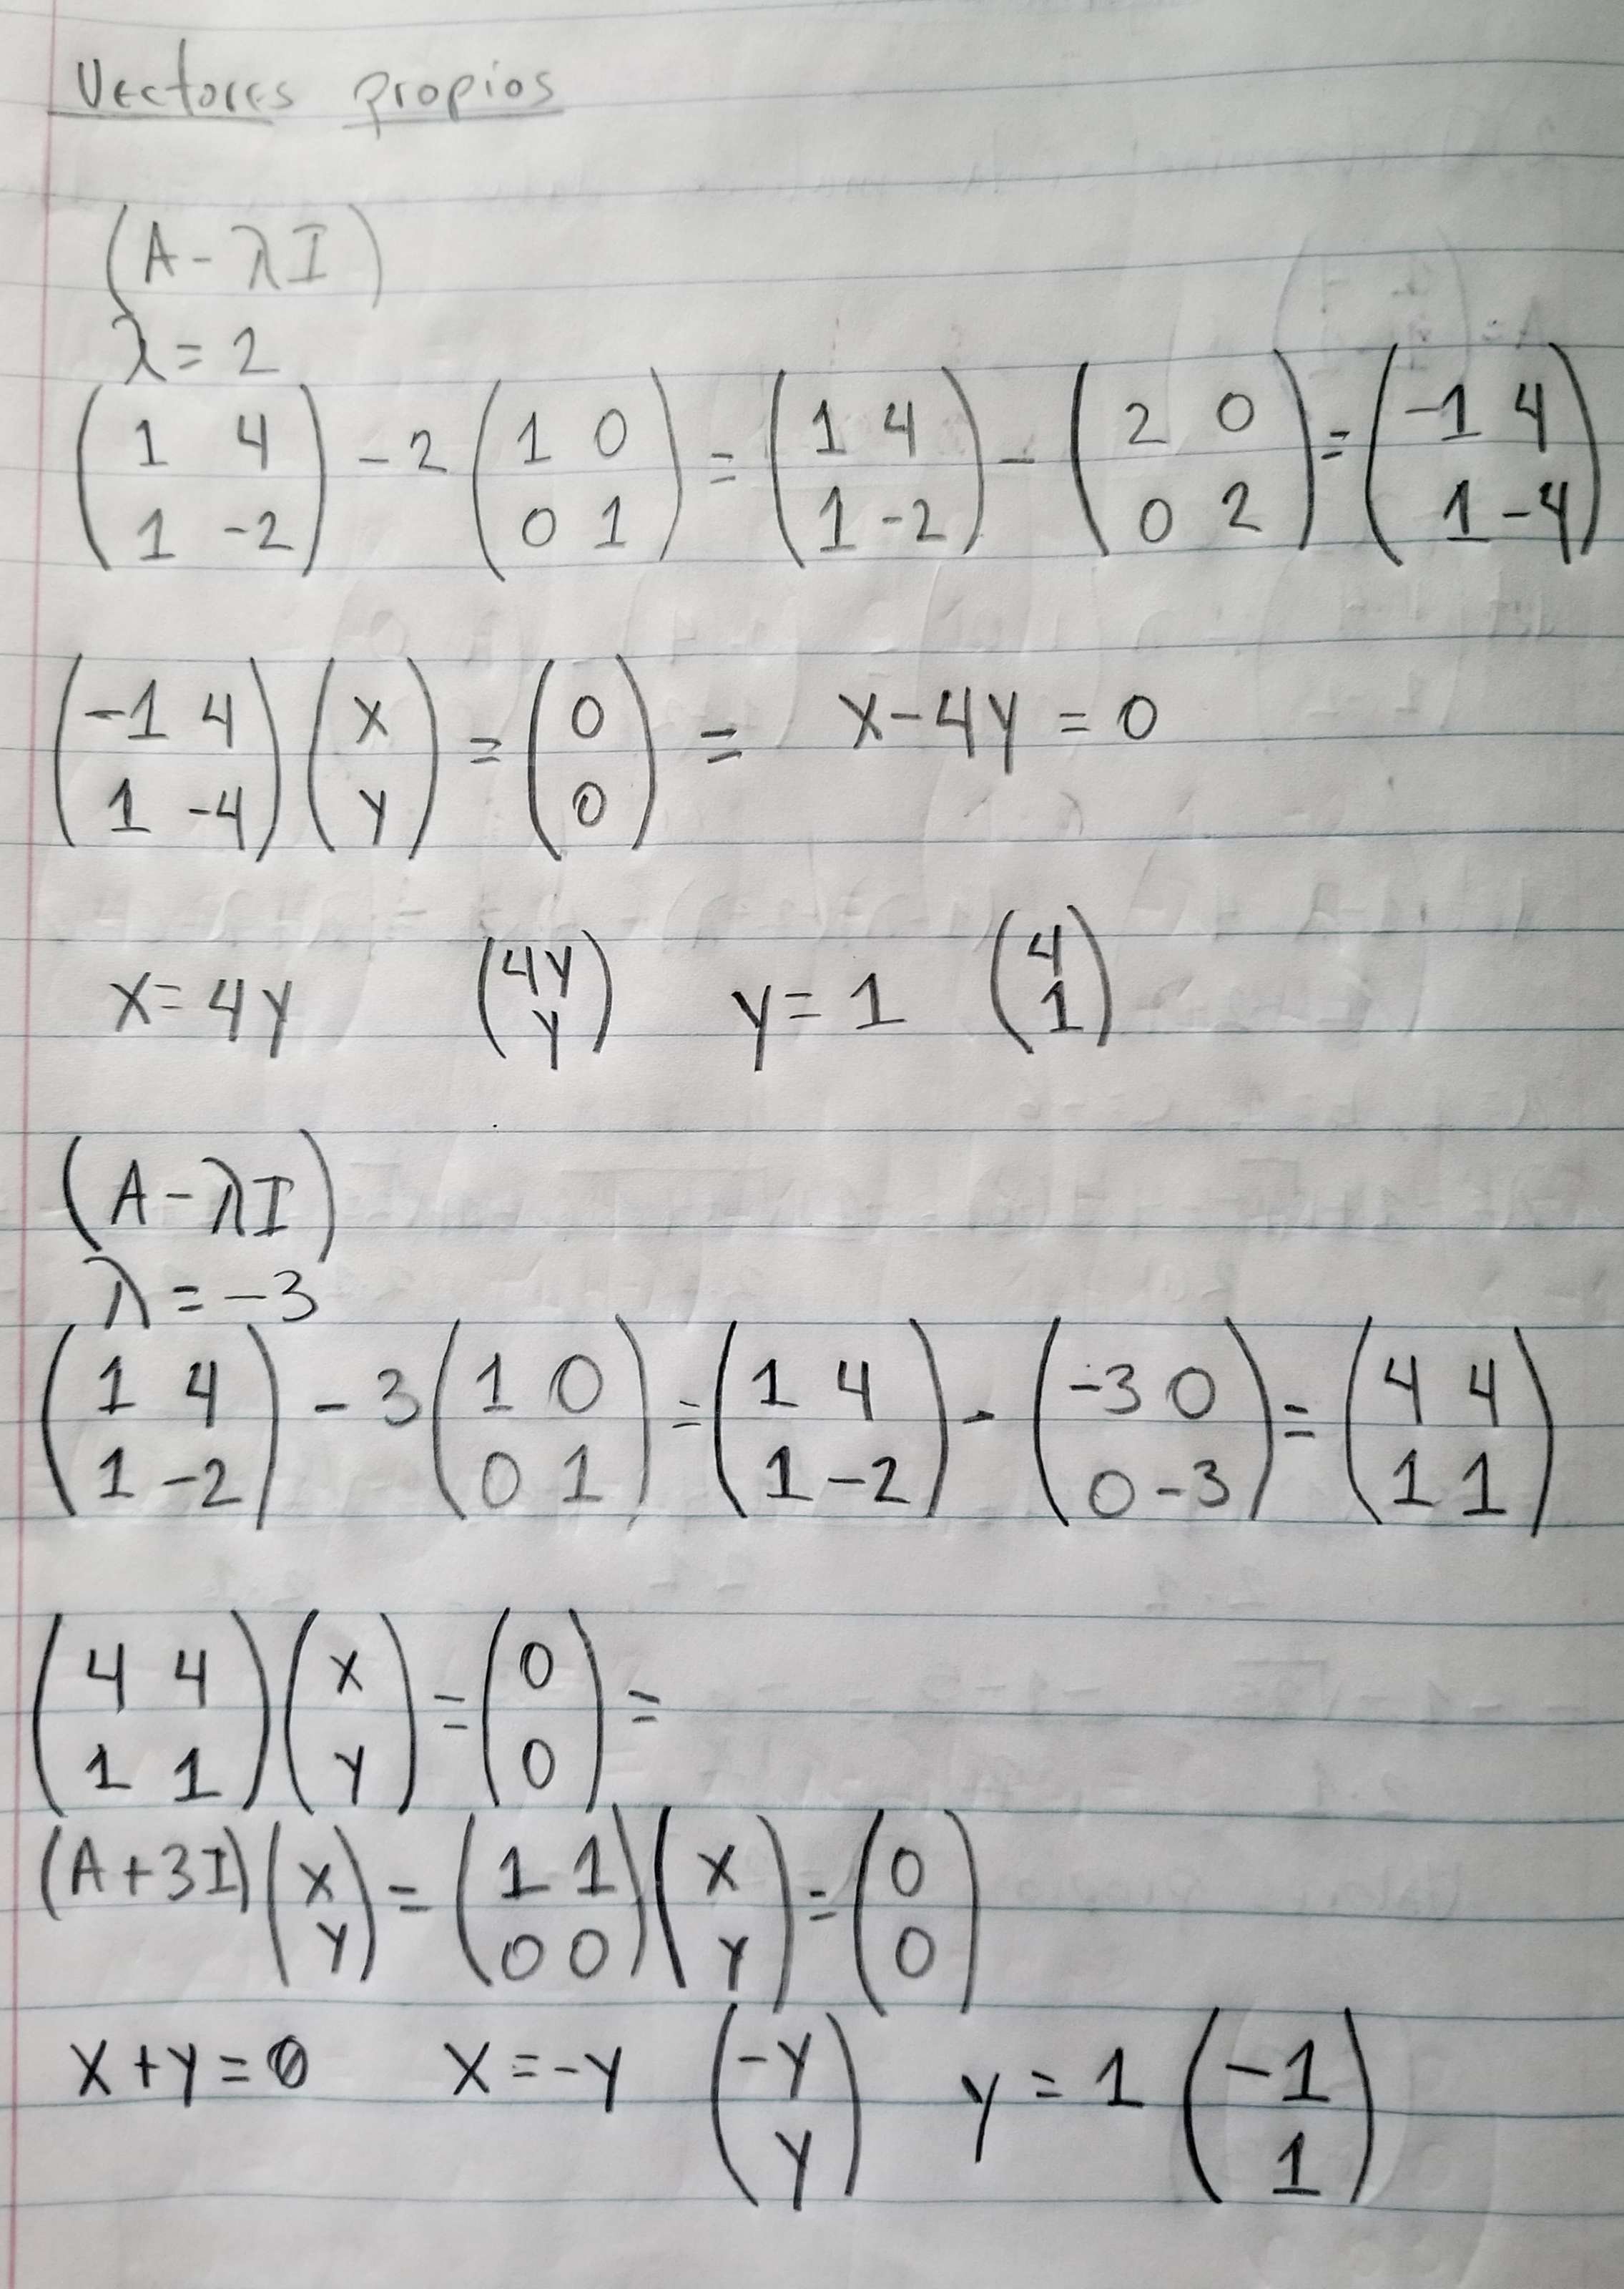 Vectores propios
(A - λI)
λ = 2
(1 4; 1 -2) - 2 (1 0; 0 1) = (1 4; 1 -2) - (2 0; 0 2) = (-1 4; 1 -4)
(-1 4; 1 -4) (x; y) = (0; 0) = x - 4y = 0
x = 4y (4y; y) y = 1 (4; 1)
(A - λI)
λ = -3
(1 4; 1 -2) - 3 (1 0; 0 1) = (1 4; 1 -2) - (-3 0; 0 -3) = (4 4; 1 1)
(4 4; 1 1) (x; y) = (0; 0) =
(A + 3I) (x; y) = (1 1; 0 0) (x; y) = (0; 0)
x + y = 0 x = -y (-y; y) y = 1 (-1; 1)